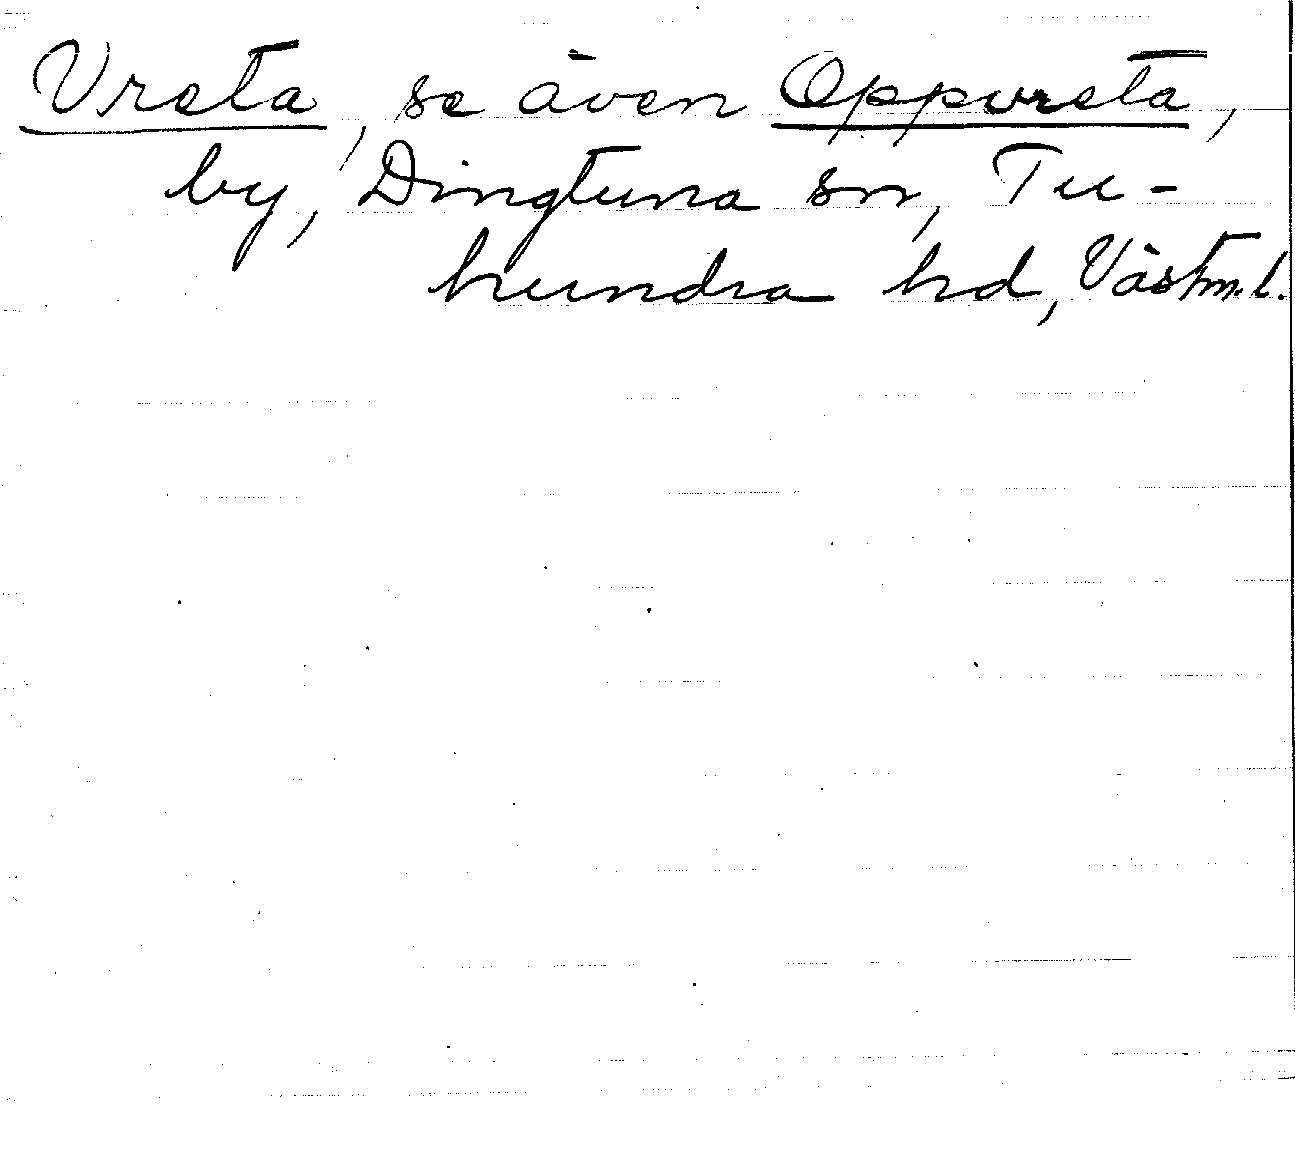 Vreta, se även Oppvreta,
by, Dingtuna sn, Tu-
hundra hd, Västm.l.